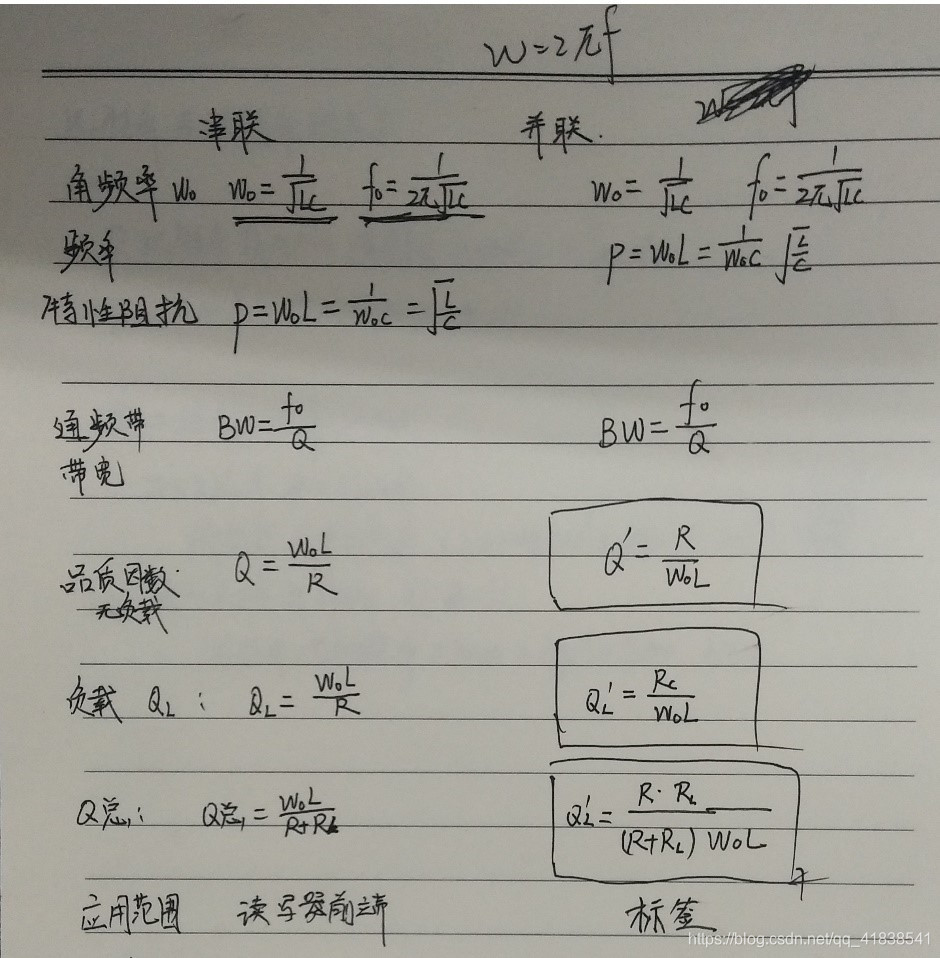 W=2πf
串联 并联.
角频率 W₀ W₀=1/√LC f₀=1/2π√LC W₀=1/√LC f₀=1/2π√LC
频率 p=W₀L=1/W₀C √L/C
特性阻抗 p=W₀L=1/W₀C=√L/C
通频带 BW=f₀/Q BW=f₀/Q
带宽
品质因数 Q=W₀L/R Q'=R/W₀L
无负载
负载 Q_L: Q_L=W₀L/R Q_L'=R_L/W₀L
Q总: Q总=W₀L/R+R_L Q_L'=R·R_L/(R+R_L)W₀L
应用范围 读写器前端 标签
https://blog.csdn.net/qq_41838541